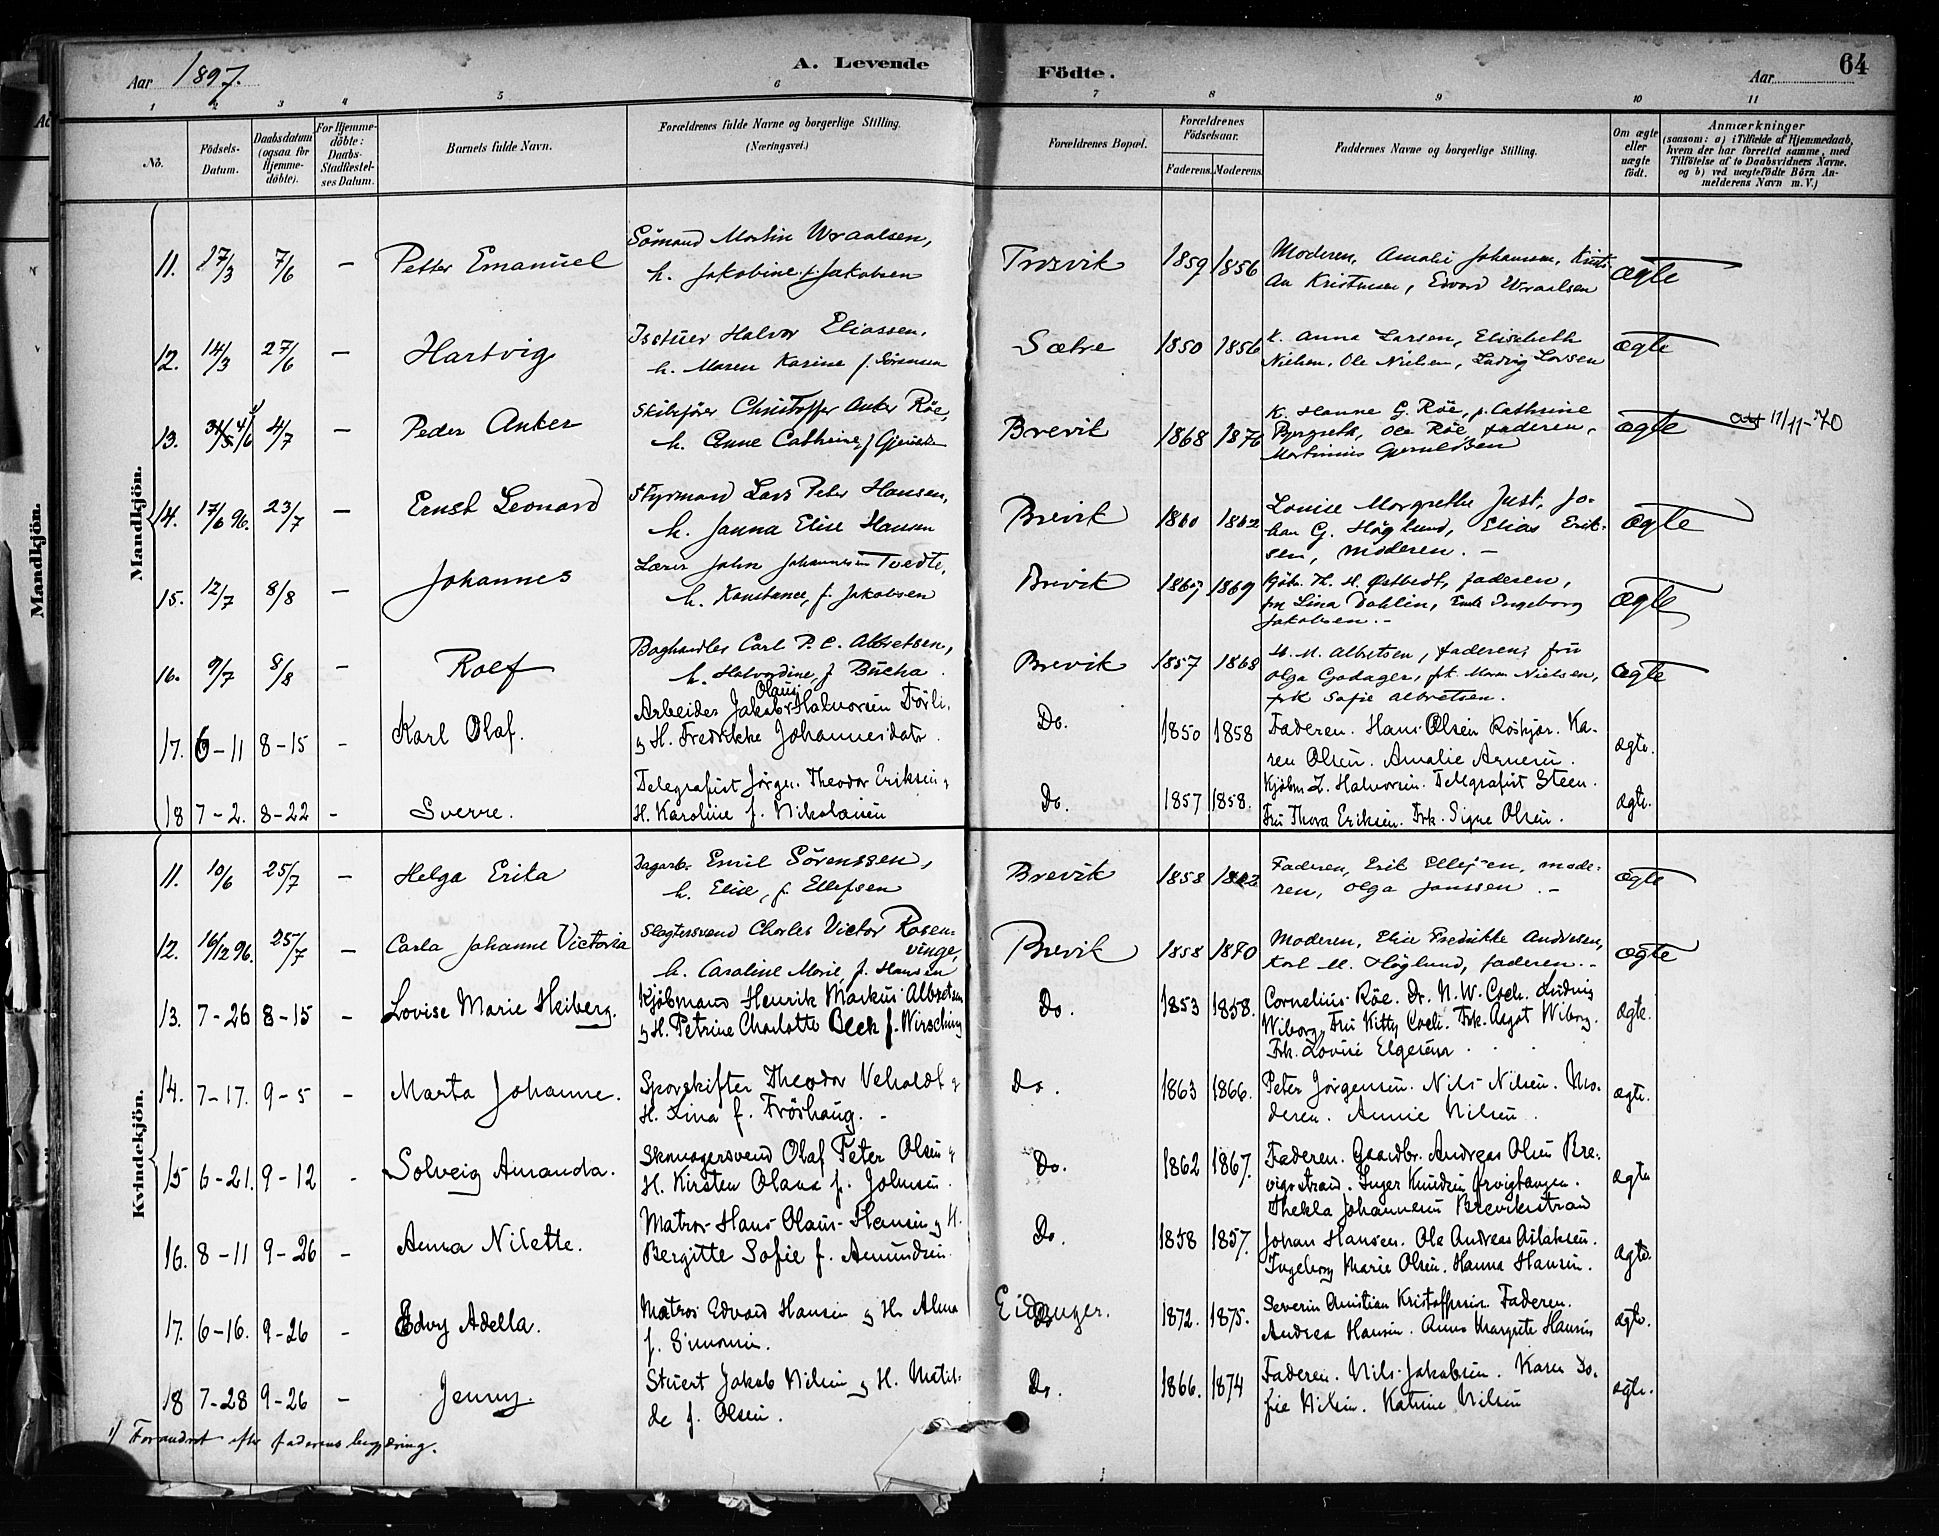 Aar 1897.
A. Levende
Födte.
Aar
64
1 2 3 4 5 6 7 8 9 10 11
No.
Födsels-
Datum.
Daabsdatum
(ogsaa for
Hjemme-
döbte).
For Hjemme-
döbte:
Daabs-
Stadfæstel-
ses Datum.
Barnets fulde Navn.
Forældrenes fulde Navne og borgerlige Stilling.
(Næringsvei.)
Forældrenes Bopæl.
Forældrenes
Födselsaar.
Faderens. Moderens.
Faddernes Navne og borgerlige Stilling.
Om ægte
eller
uægte
födt.
Anmærkninger
(saasom: a) i Tilfælde af Hjemmedaab,
hvem der har forrettet samme, med
Tilföielse af to Daabsvidners Navne.
og b) ved uægtefödte Börn An-
melderens Navn m. V.)
Mandkjön.
Mandkjön.
11. 27/3 7/6 — Petter Emanuel
Sömand Martin Wraalsen,
h. Jakobine f. Jakobsen
Trosvik 1859 1856
Moderen, Amalie Johansen, Kristi
an Kristensen, Edvard Wraalsen
ægte
12. 14/3 27/6 — Hartvig
Halvor Eliassen,
h. Maren Karine f. Sörensen
Sætre 1850 1856
K. Anna Larsen, Elisabeth
Nielsen, Ole Nielsen, Ludvig Larsen
ægte
13. 31/5 4/6 1) 4/7 — Peder Anker
Skibsförer Christoffer Anker Röe,
h. Anne Cathrine, f
Brevik 1868 1876
K. Hanne G. Röe, f. Cathrine
Ole Röe, faderen,
Martinius
ægte
att 11/11-70
14. 17/6 96. 23/7 — Ernst Leonard
Styrmand Lars Peter Hansen,
h. Janna Elise Hansen
Brevik 1860 1862
Louise Margrethe Just, Jo-
han G. Höglund, Elias Erik-
sen, moderen. —
ægte
15. 12/7 8/8 — Johannes
Lærer John Johannesen Tvedte,
h. Konstance, f. Jakobsen
Brevik 1867 1869
Gjbr. H. H. Östbedt, faderen,
frk Lina Dahlin, Ingeborg
Jakobsen. —
ægte
16. 9/7 8/8 — Rolf
Boghandler Carl P. C. Albretsen,
h. Halvordine, f Bucha
Brevik 1857 1868
H. M. Albretsen, faderen, fru
Olga Godager, frk. Maren Nielsen,
frk Sofie Albretsen.
ægte
17. 6-11 8-15 - Karl Olaf.
Olaus
Arbeider Jakob Halvorsen Törli,
og H. Fredrikke Johannesdatr.
Do. 1850 1858
Faderen. Hans Olsen Röskjær. Ka-
ren Olsen. Amalie Arnesen.
ægte.
18 7-2. 8-22 - Sverre.
Telegrafist Jörgen Theodor Eriksen &
H. Karoline f. Nikolaisen
Do. 1857 1858.
Kjöbm L. Halvorsen. Telegrafist Steen.
Fru Thora Eriksen. Frk. Signe Olsen.
ægte.
Kvindekjön.
11. 10/6 25/7 — Helga Erika
Dagarb. Emil Sörenssen,
h. Elise, f. Ellefsen
Brevik 1858 1862
Faderen, Erik Ellefsen, mode-
ren, Olga Janssen. —
ægte
12. 16/12 96. 25/7 — Carla Johanne Victoria
Slagtersvend Charles Victor Rosen-
vinge,
h. Caroline Marie f. Hansen
Brevik 1858 1870
Moderen, Elise Fredrikke Andresen,
Karl M. Höglund, faderen. —
ægte
13. 7-26 8-15 - Lovise Marie Heiberg.
Kjöbmand Henrik Markus Albretsen
og H. Petrine Charlotte Beck f. Wirsching
Do. 1853 1858.
Cornelius Röe. Dr. N. W. Coch. Ludvig
Wiborg. Fru Kitty Coch. Frk. Aagot Wiborg.
Frk. Lovise Elgesem.
ægte.
14. 7-17. 9-5 - Marta Johanne.
Sporskifter Theodor Veholdt &
H. Lina f. Fröshaug. -
Do. 1863 1866.
Peter Jörgensen. Nils Nilsen. Mo-
deren. Annie Nilsen.
ægte.
15 6-21. 9-12 - Solveig Amanda.
Skomagersvend Olaf Peter Olsen &
H. Kirsten Olava f. Johnsen.
Do. 1862 1867.
Faderen. Gaardbr. Andreas Olsen Bre-
vigsstrand. Inger Knudsen Örvigtangen.
Thekla Johannesen Brevikstrand
ægte
16. 8-11 9-26 - Anna Nilette.
Matros Hans Olaus Hansen og H.
Bergitte Sofie f. Amundsen.
Do. 1858 1857.
Johan Hansen. Ole Andreas Aslaksen.
Ingeborg Marie Olsen. Hanna Hansen.
ægte.
17. 6-16. 9-26 - Edvy Adella.
Matros Edvard Hansen og H. Alma
f. Simonsen.
Eidanger. 1872. 1875.
Severin Christian Kristoffersen. Faderen.
Andrea Hansen. Anne Margrete Hansen
ægte.
18 7-28 9-26 - Jenny.
Stuert Jakob Nilsen og H. Matil-
de f. Olsen.
Do. 1866. 1874
Faderen. Nils Jakobsen. Karen So-
fie Nilsen. Katrine Nilsen
ægte.
1) Forandret efter faderens begjæring.